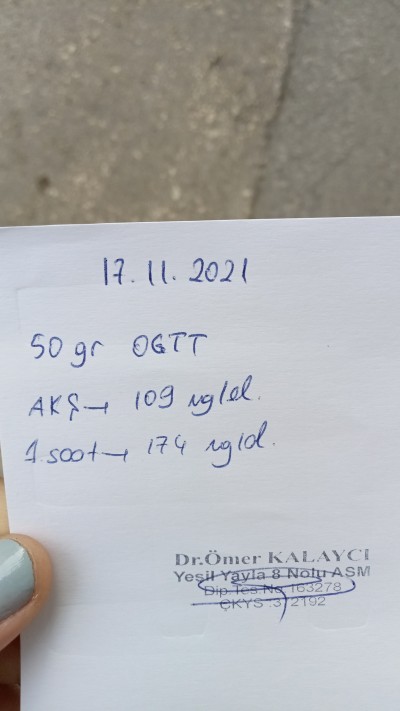 17.11.2021
50 gr OGTT
AKŞ→ 109 mg/dl.
1.saat→ 174 mg/dl.
Dr.Ömer KALAYCI
Yeşil Yayla 8 Nolu ASM
Dip.Tes.No 163278
ÇKYS :372192